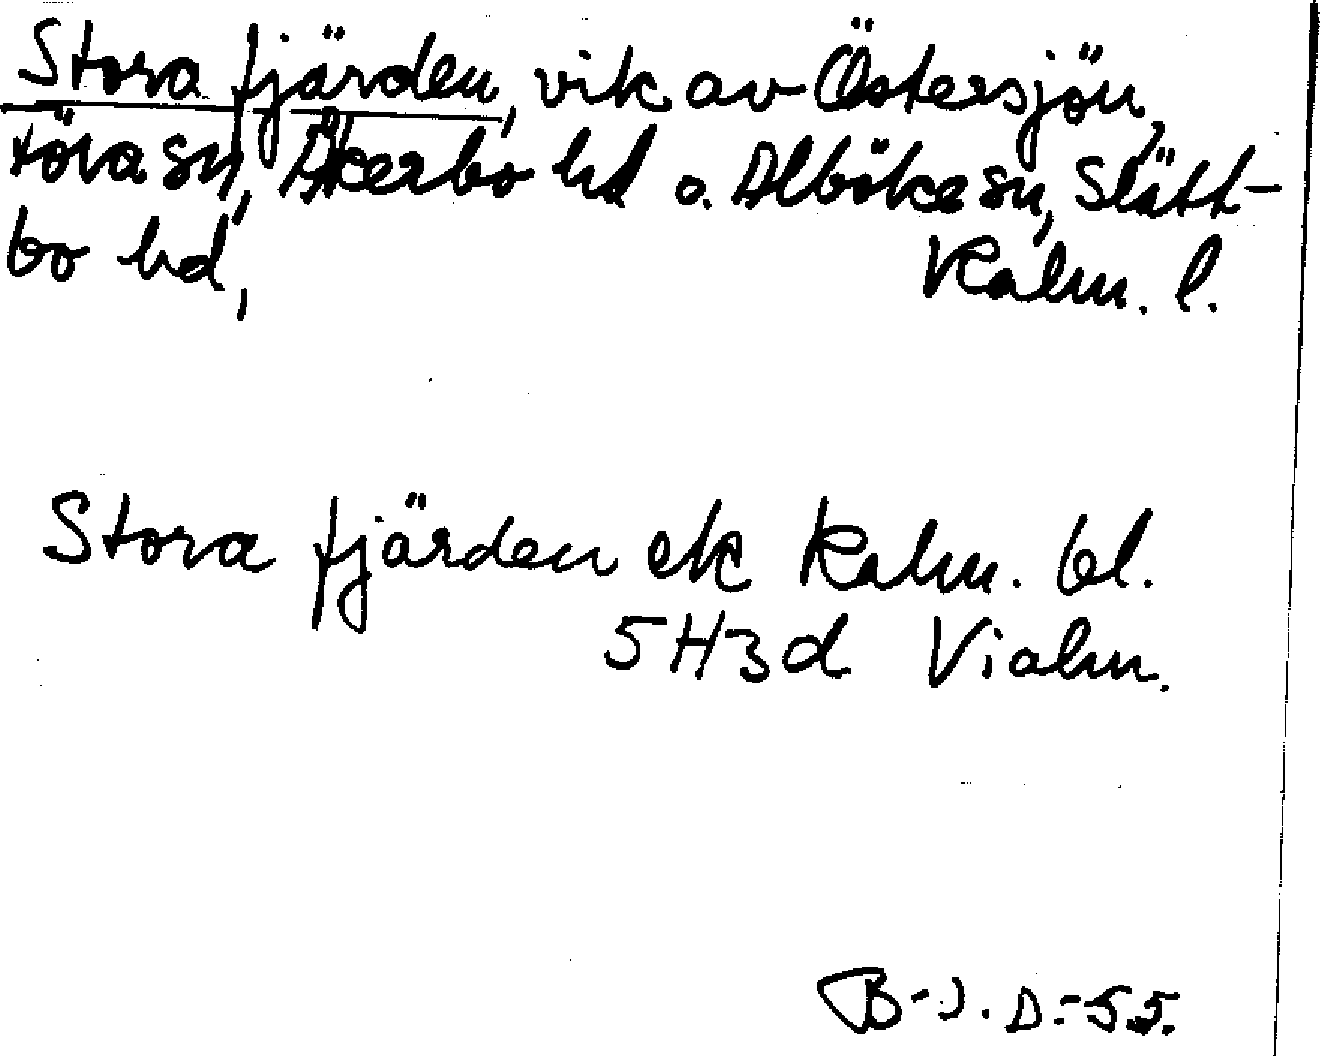 Stora fjärden, vik av Östersjön,
Löva sn, Åkerbo hd o. Alböke sn, Slätt-
bo hd, Kalm. l.
Stora fjärden ek Kalm. bl.
5H3d Vialm.
B-J. D.-55.